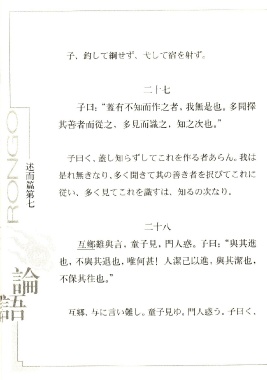 子、釣して綱せず、弋して宿を射ず。
二十七
子曰:“蓋有不知而作之者、我無是也。多聞擇
其善者而從之、多見而識之、知之次也。”
子曰く、蓋し知らずしてこれを作る者あらん。我は
是れ無きなり、多く聞きて其の善き者を択びてこれに
従い、多く見てこれを識すは、知るの次なり。
二十八
互鄉難與言。童子見、門人惑。子曰:“與其進
也、不與其退也、唯何甚!人潔己以進、與其潔也、
不保其往也。”
互郷、与に言い難し。童子見ゆ。門人惑う。子曰く、
RONGO
述而篇第七
論語